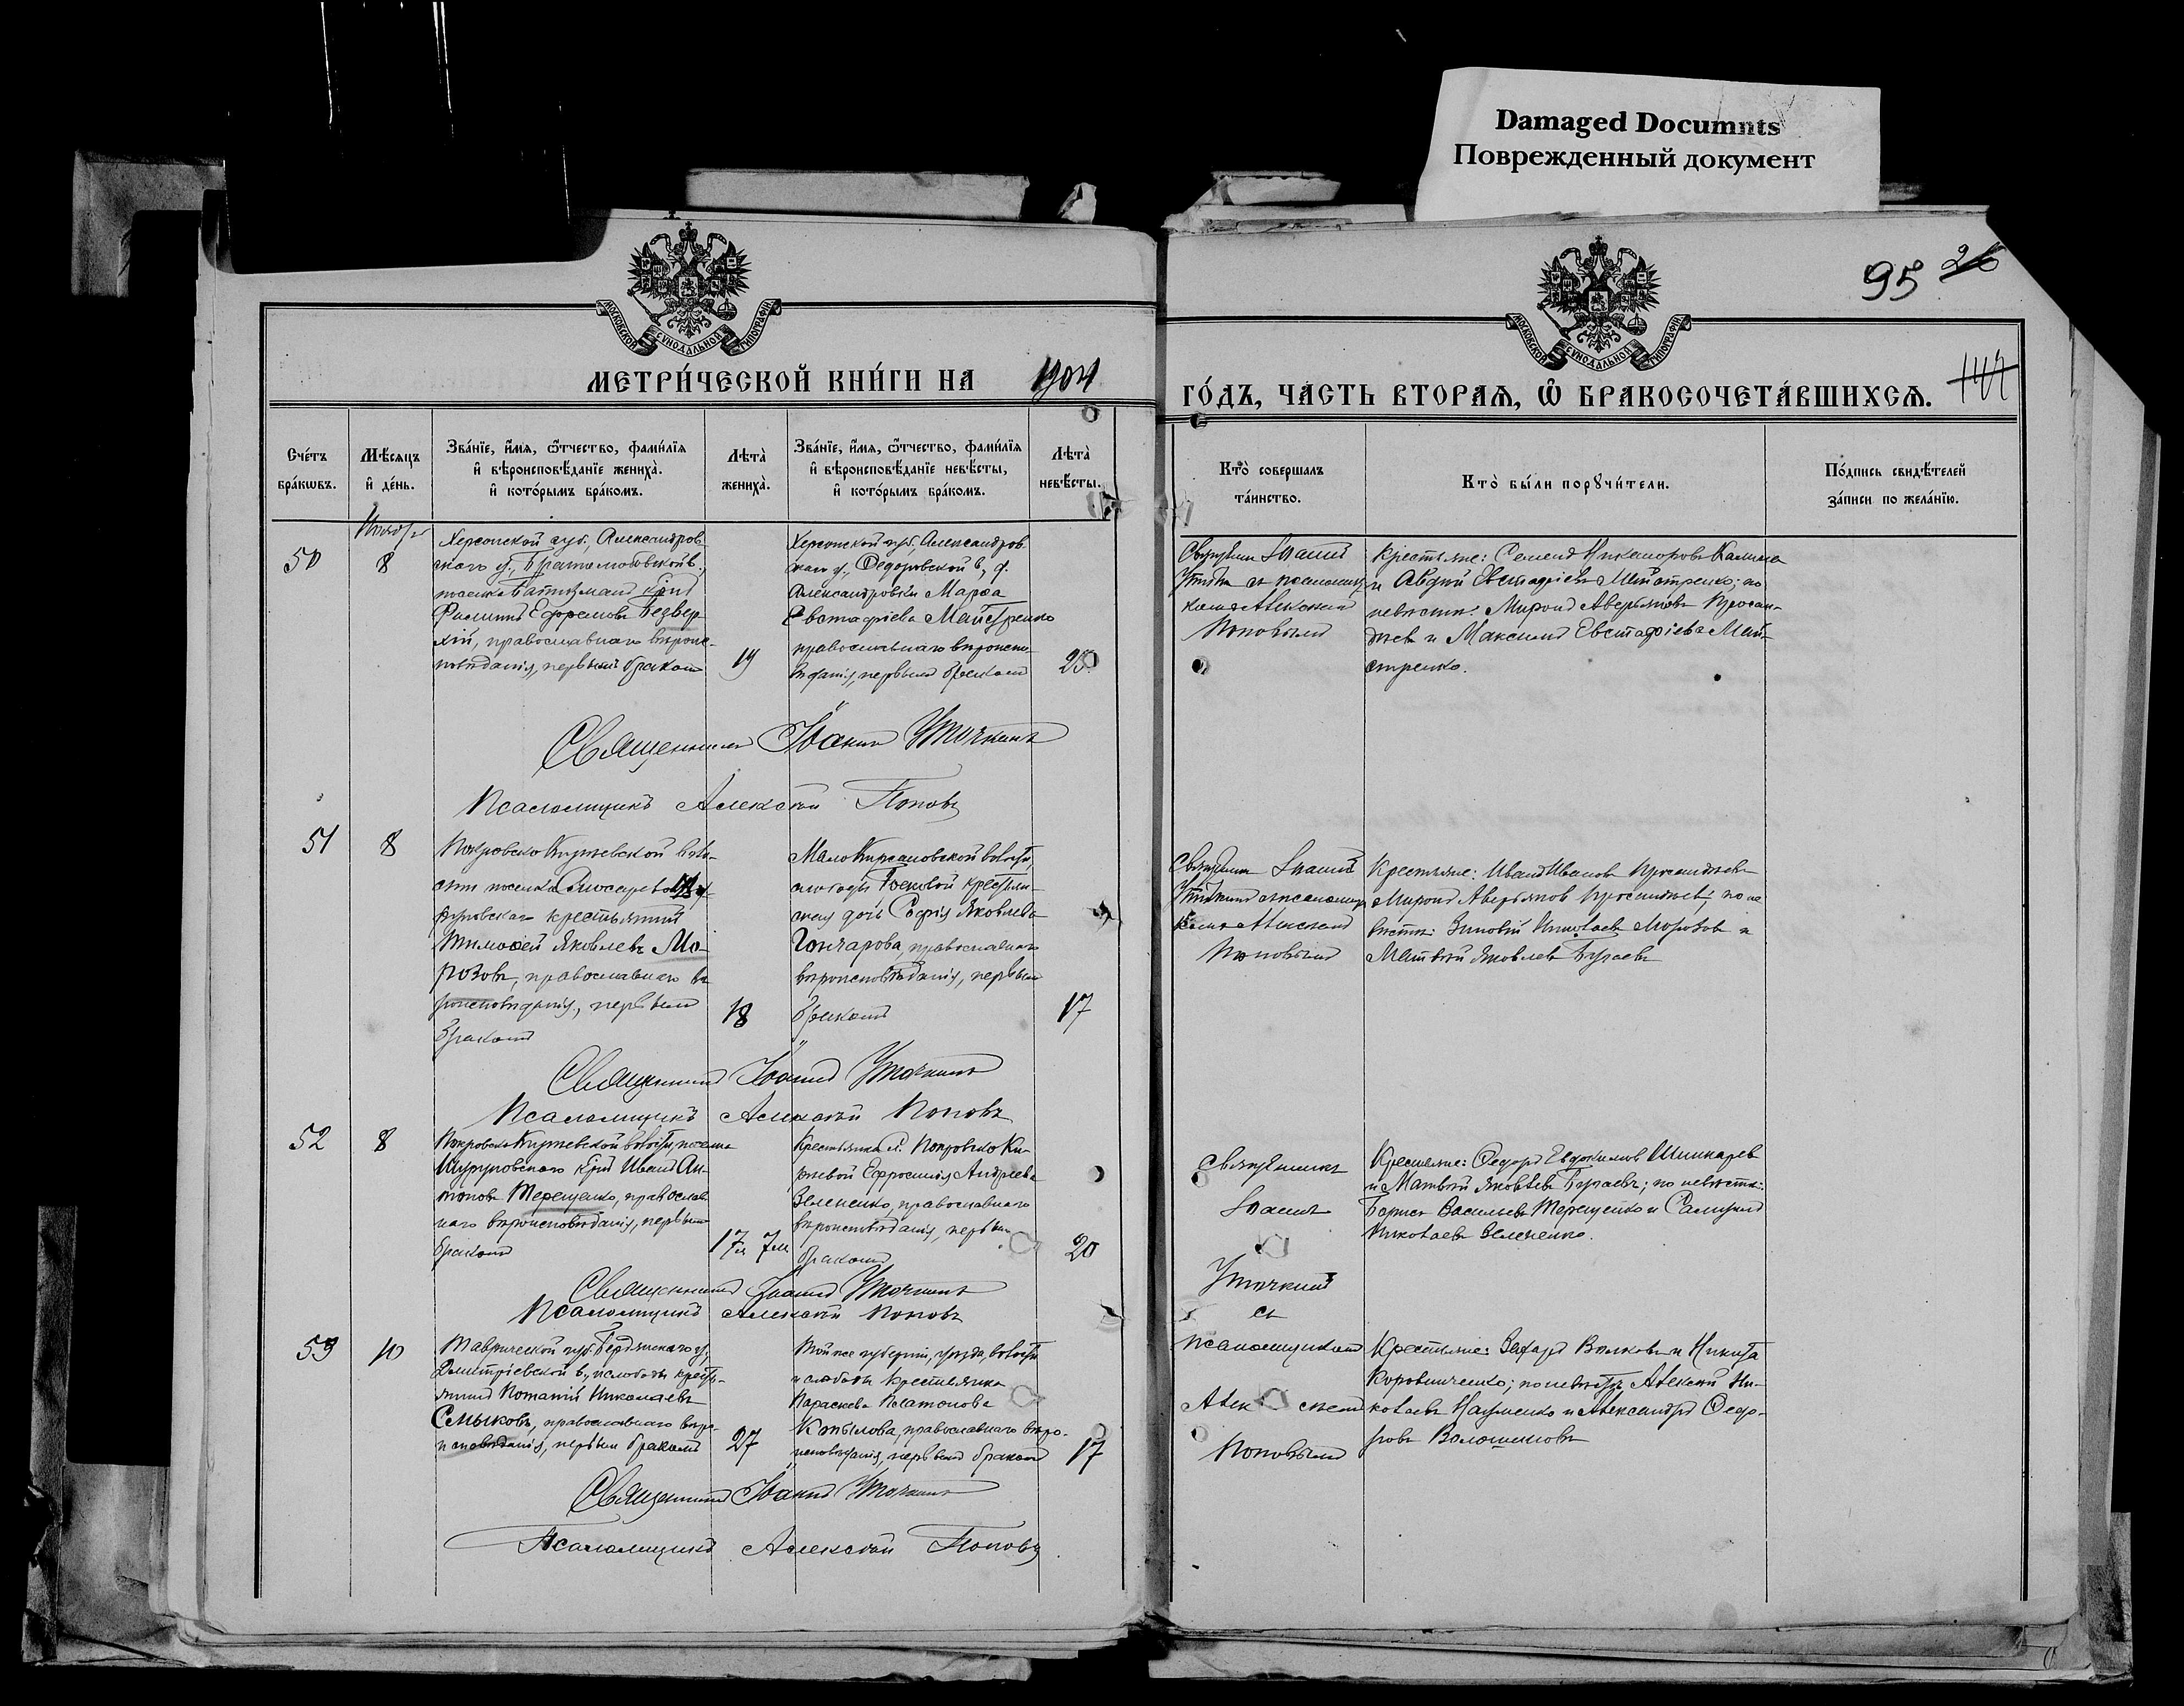 Damaged Documnts
Поврежденный документ
95 26
МОСКОВСКОЙ СѴНОДАЛЬНОЙ ТИПОГРАФІИ
МЕТРИ́ЧЕСКОЙ КНИ́ГИ НА 1904
МОСКОВСКОЙ СѴНОДАЛЬНОЙ ТИПОГРАФІИ
ГО́ДЪ, ЧАСТЬ ВТОРАѦ, Ѿ БРАКОСОЧЕТА́ВШИХСѦ.
Сче́тъ бра́кѡвъ.
Мѣ́сѧцъ и҆ де́нь.
Зва́нїе, и҆́мѧ, ѻ҆́тчество, фами́лїѧ
и҆ вѣроисповѣ́данїе жениха̀.
и҆ кото́рымъ бра́комъ.
Лѣта̀ жениха̀.
Зва́нїе, и҆́мѧ, ѻ҆́тчество, фами́лїѧ
и҆ вѣроисповѣ́данїе невѣ́сты,
и҆ кото́рымъ бра́комъ.
Лѣта̀ невѣ́сты.
Кто̀ соверша́лъ
та́инство.
Кто̀ бы́ли порꙋчи́тели.
По́дпись свидѣ́телей
за́писи по жела́нїю.
50
Ноября
8
Херсонской губ., Александров-
скаго у., Братолюбовской в.,
поселка
Филиппъ Ефремовъ Безвер-
хій, православнаго вѣроис-
повѣданія, первымъ бракомъ
19
Херсонской губ., Александров-
скаго у., Федоровской в., д.
Александровки Марѳа
Евстафіева Майстренко
православнаго вѣроиспо-
вѣданія, первымъ бракомъ
Священникъ Іоаннъ
съ псаломщи-
комъ Алексѣемъ
Поповымъ
Крестьяне: Семенъ Никаноровъ
и Авдѣй Евстафіевъ Майстренко; по
невѣстѣ: Миронъ Аверьяновъ
и Максимъ Евстафіевъ Май-
стренко.
Священникъ Іоаннъ Уточкинъ
Псаломщикъ Алексѣй Поповъ
51
8
Покровско Киржевской воло-
сти поселка
крестьянинъ
Тимоѳей Яковлевъ Мо-
розовъ, православнаго вѣ-
роисповѣданія, первымъ
бракомъ
18
Мало Кирсановской волости,
слободы крестьян-
ская дочь Софія Яковлева
Гончарова, православнаго
вѣроисповѣданія, первымъ
бракомъ
17
Священникъ Іоаннъ
Алексѣемъ
Поповымъ
Крестьяне: Иванъ Ивановъ
Миронъ Аверьяновъ по не-
вѣстѣ: Зиновій Николаевъ Морозовъ и
Матвѣй Яковлевъ Бураевъ
Священникъ Іоаннъ Уточкинъ
Псаломщикъ Алексѣй Поповъ
52
8
Покровско Киржевской волости, поселка
крест. Иванъ Ан-
тоновъ Терещенко, православ-
наго вѣроисповѣданія, первымъ
бракомъ
17л 7м
Крестьянка с. Покровско Ки-
ржевой Ефросинія Андреева
Зеленско, православнаго
вѣроисповѣданія, первымъ
бракомъ
20
Священникъ
Іоаннъ
Уточкинъ
съ
псаломщикомъ
Алексѣемъ
Поповымъ
Крестьяне: Федоръ Евдокимовъ Шинкаревъ
и Матвѣй Яковлевъ Бураевъ; по невѣстѣ:
Борисъ Васильевъ Терещенко и
Николаевъ Зеленско.
Священникъ Іоаннъ Уточкинъ
Псаломщикъ Алексѣй Поповъ
53
10
Таврической губ. Бердянскаго у.,
Дмитріевской в., и слободы кресть-
янинъ Потапій Николаевъ
Смыковъ, православнаго вѣро-
исповѣданія, первымъ бракомъ
27
Той же губерніи, уѣзда, волости
и слободы крестьянка
Параскева Платонова
православнаго вѣро-
исповѣданія, первымъ бракомъ
17
Крестьяне: Захаръ Волковъ и Никита
по невѣстѣ: Алексѣй Ни-
колаевъ Науменко и Александръ Федо-
ровъ Волошиновъ
Священникъ Іоаннъ Уточкинъ
Псаломщикъ Алексѣй Поповъ